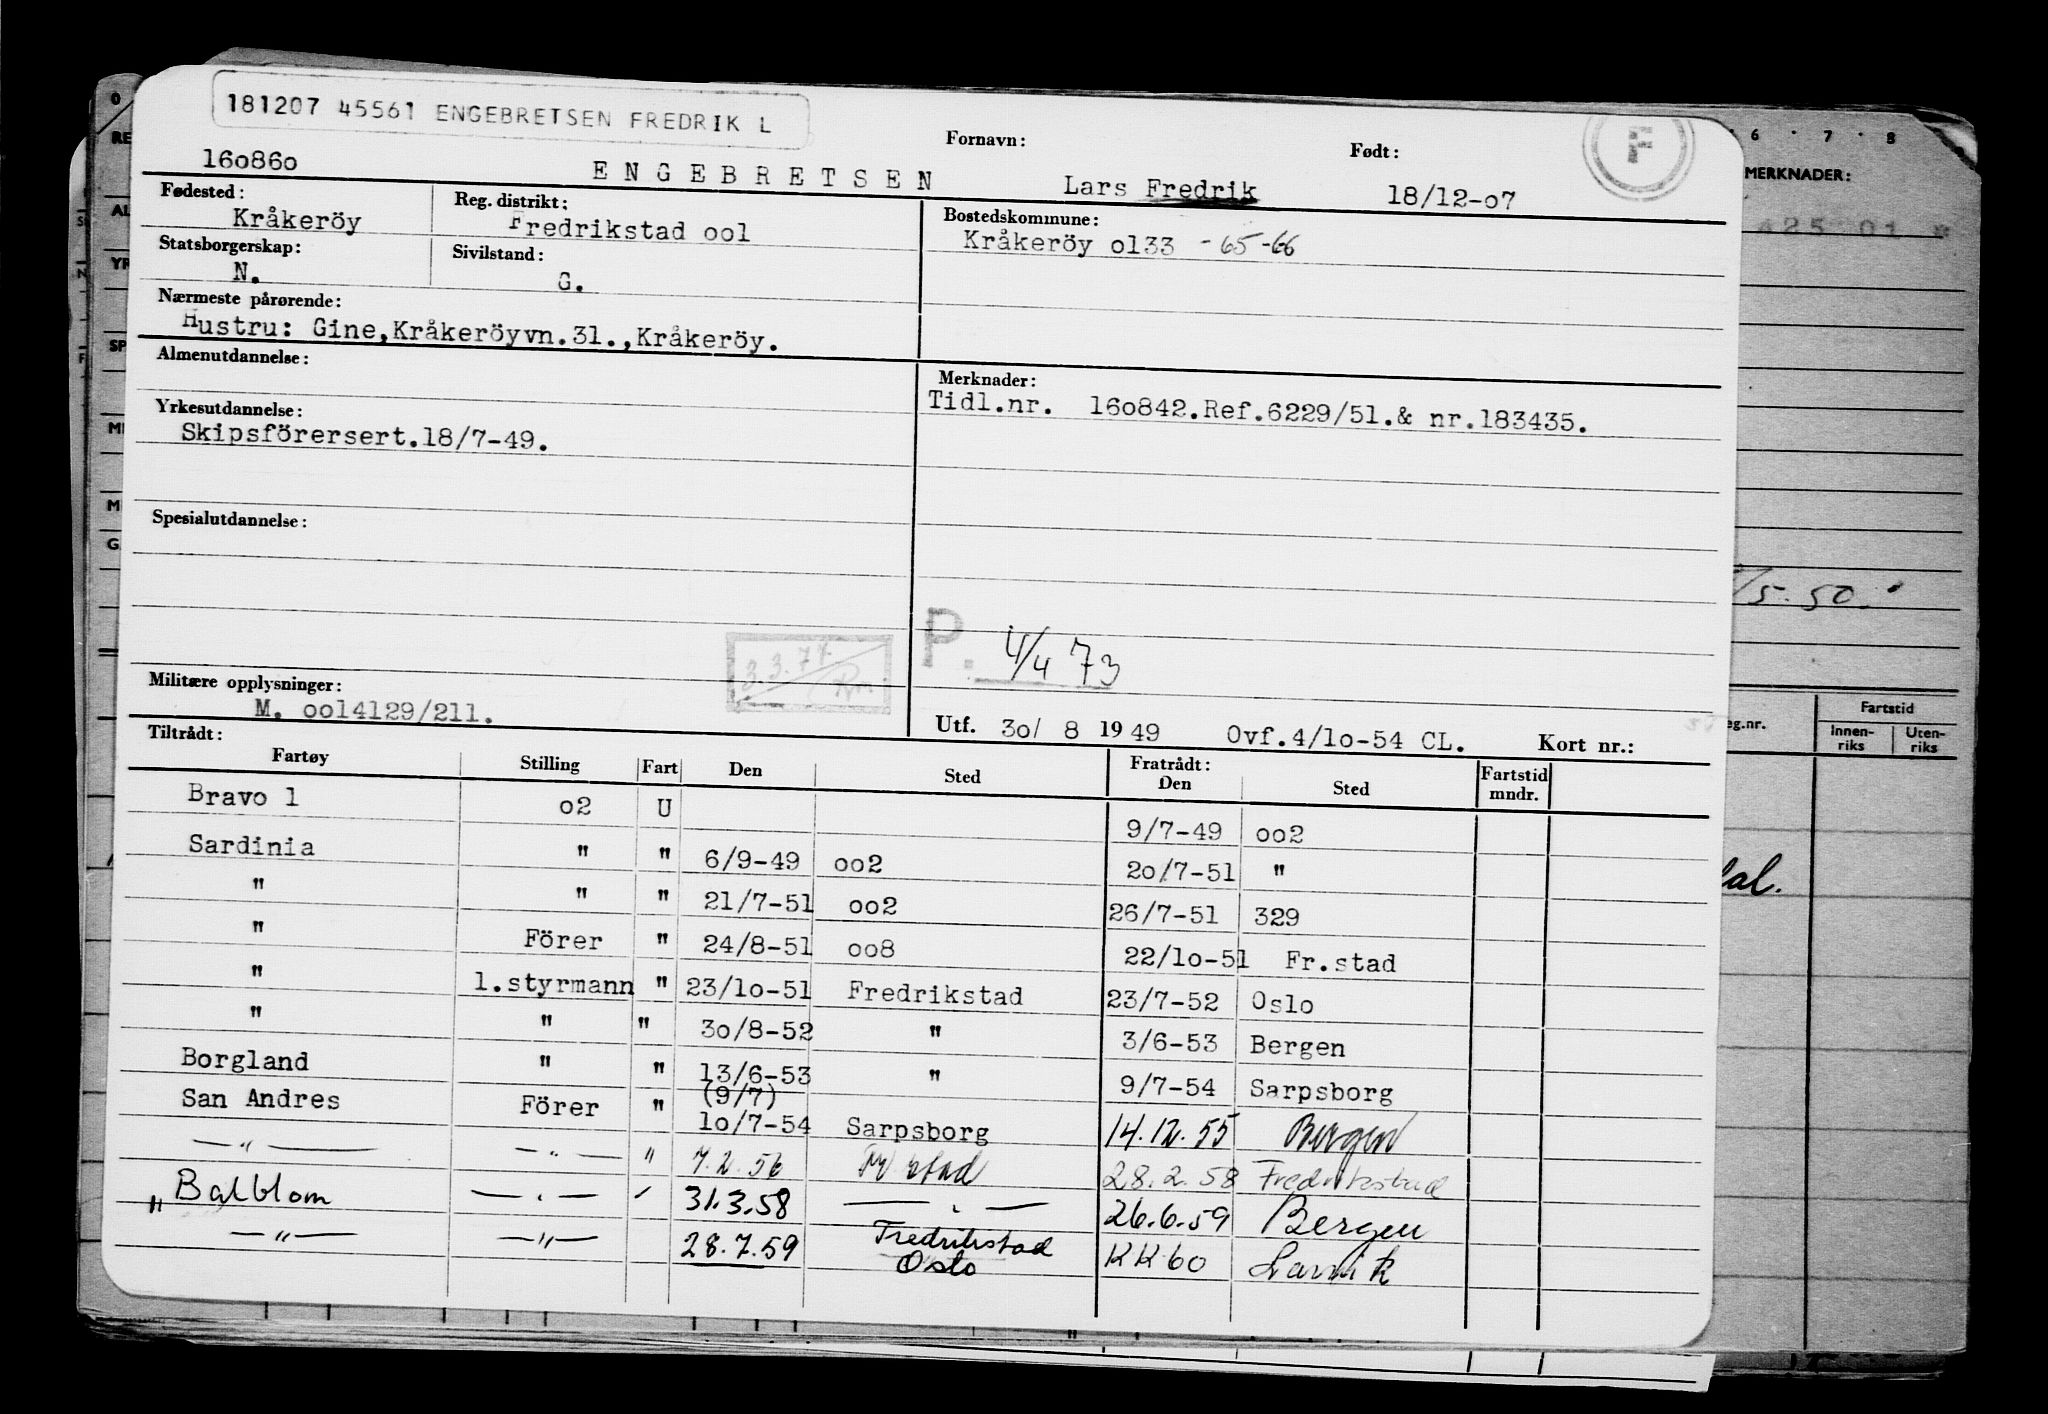 181207 45561 ENGEBRETSEN FREDRIK L
160860
ENGEBRETSEN
Fornavn:
Lars Fredrik
Født:
18/12-07
F
Fødested:
Kråkeröy
Reg. distrikt:
Fredrikstad ool
Bostedskommune:
Kråkeröy ol33 -65-66
Statsborgerskap:
N.
Sivilstand:
G.
Nærmeste pårørende:
Hustru: Gine,Kråkeröyvn.31.,Kråkeröy.
Almenutdannelse:
Merknader:
Tidl.nr. 160842.Ref.6229/51.& nr.183435.
Yrkesutdannelse:
Skipsförersert.18/7-49.
Spesialutdannelse:
3.3.77
P. 4/4 73
Militære opplysninger:
M. ool4129/211.
Utf. 30/ 8 1949 Ovf.4/lo-54 CL. Kort nr.:
Tiltrådt:
Fartøy Stilling Fart Den Sted Fratrådt: Den Sted Fartstid mndr.
Bravo l o2 U 9/7-49 oo2
Sardinia " " 6/9-49 oo2 20/7-51 "
" " " 21/7-51 oo2 26/7-51 329
" Förer " 24/8-51 oo8 22/lo-51 Fr.stad
" l.styrmann " 23/lo-51 Fredrikstad 23/7-52 Oslo
" " " 30/8-52 " 3/6-53 Bergen
Borgland " " 13/6-53 " 9/7-54 Sarpsborg
San Andres Förer " (9/7) lo/7-54 Sarpsborg 14.12.55 Bergen
—"— —"— " 7.2.56 Fr stad 28.2.58 Fredrikstad
" Balblom —"— " 31.3.58 —"— 26.6.59 Bergen
—"— —"— 28.7.59 Fredrikstad Oslo KK60 Larvik
6 · 7 · 8
MERKNADER:
425 01
/5.50.
eg.nr.
Fartstid
Innenriks
Utenriks
dal.